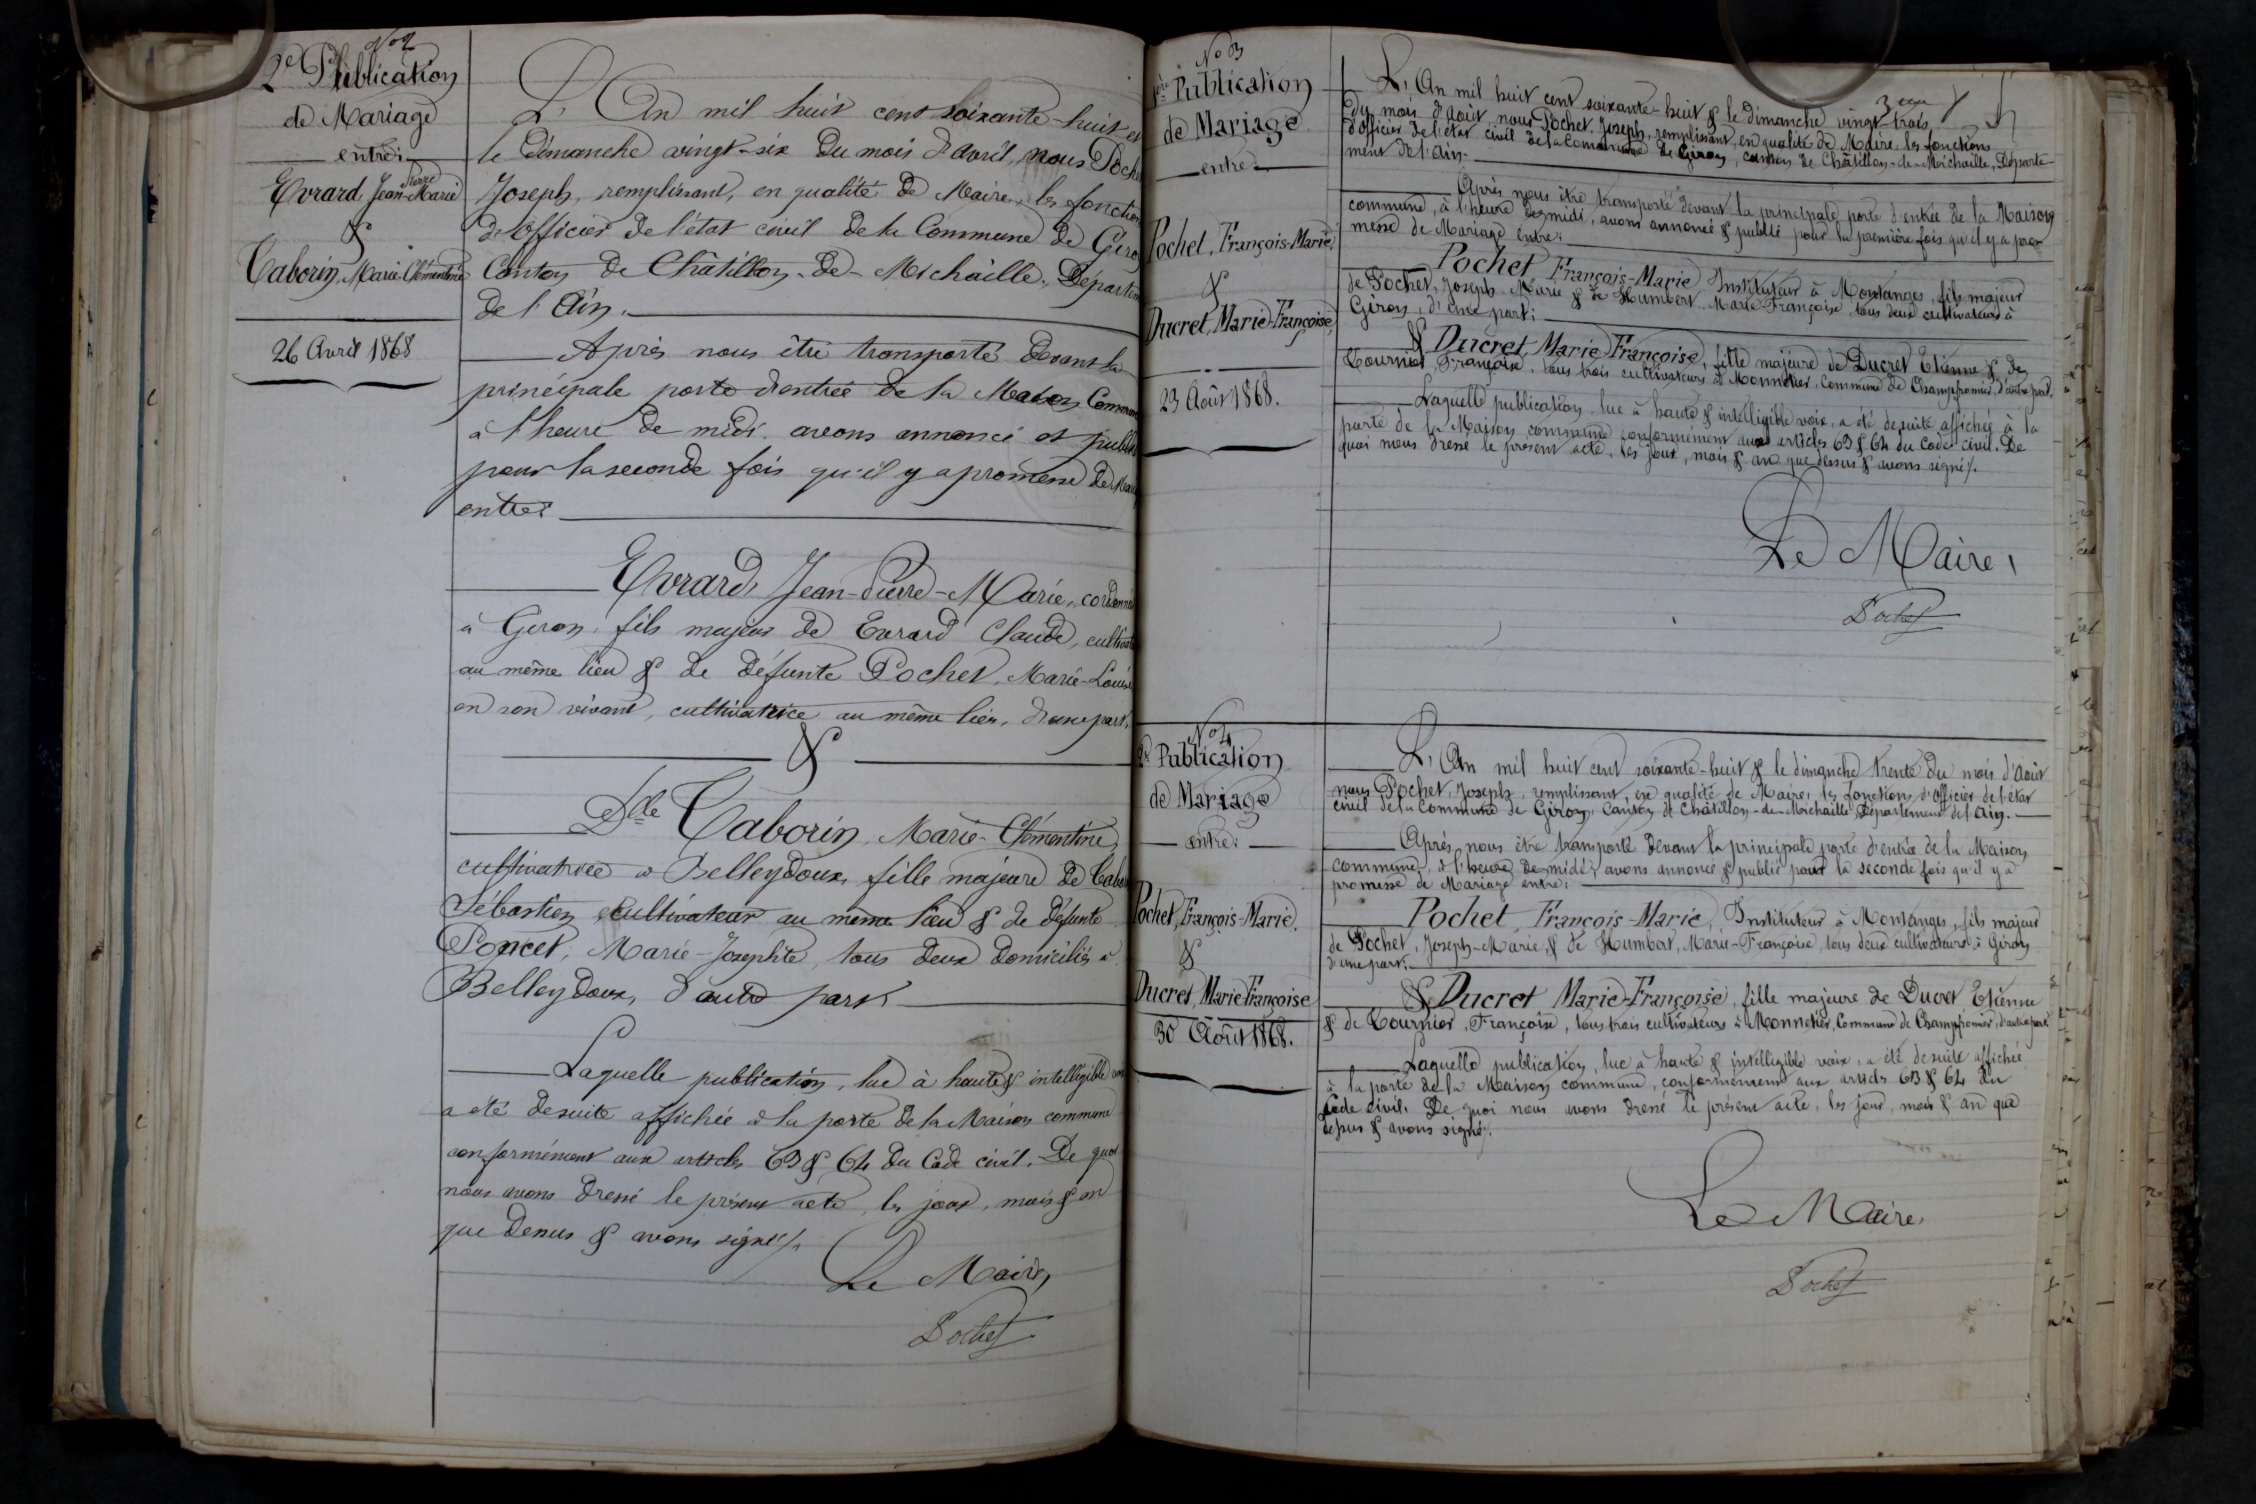 No 2
2e Publication
de Mariage
entre:
Evrard, Jean-Pierre-Marie
&
Taborin, Marie-Clémentine
26 Avril 1868
L'An mil huit cent soixante-huit et
le dimanche vingt-six du mois d'avril, nous Poche
Joseph, remplissant, en qualité de Maire, les fonction
d'officier de l'état civil de la Commune de Giro
Canton de Châtillon-de-Michaille, Départem
de l'Ain.
Après nous être transporté devant la
principale porte d'entrée de la Maison Commun
à l'heure de midi, avons annoncé et publié
pour la seconde fois qu'il y a promesse de Maria
entre:
Evrard, Jean-Pierre-Marie, cordonni
à Giron, fils majeur de Evrard Claude, cultivat
au même lieu & de défunte Pochet, Marie-Louise
en son vivant, cultivatrice au même lieu, d'une part,
&
Dlle Taborin, Marie-Clémentine,
cultivatrice à Belleydoux, fille majeure de Tabo
Sébastien, cultivateur au même lieu & de défunte
Poncet, Marie-Josephte, tous deux domiciliés à
Belleydoux, d'autre part.
Laquelle publication, lue à haute & intelligible voix
a été de suite affichée à la porte de la Maison commune
conformément aux articles 63 & 64 du Code civil. De quoi
nous avons dressé le présent acte, les jour, mois & an
que dessus & avons signé/.
Le Maire,
Pochet
No 3
1ère Publication
de Mariage
entre
Pochet, François-Marie,
&
Ducret, Marie-Françoise,
23 Août 1868.
L'An mil huit cent soixante-huit & le dimanche vingt trois
du mois d'août, nous Pochet, Joseph, remplissant, en qualité de Maire, les fonctions
d'officier de l'état civil de la Commune de Giron, canton de Châtillon-de-Michaille, Départe-
ment de l'Ain.
Après nous être transporté devant la principale porte d'entrée de la Maison
commune, à l'heure de midi, avons annoncé & publié pour la première fois qu'il y a pro-
messe de Mariage entre:
Pochet, François-Marie, Instituteur à Montanges, fils majeur
de Pochet, Joseph-Marie & de Humbert Marie-Françoise, tous deux cultivateurs à
Giron, d'une part;
& Ducret, Marie-Françoise, fille majeure de Ducret Etienne & de
Tournier, Françoise, tous trois cultivateurs à Monnetier, Commune de Champfromier, d'autre part.
Laquelle publication lue à haute & intelligible voix, a été de suite affichée à la
porte de la Maison commune conformément aux articles 63 & 64 du Code civil. De
quoi nous dressé le présent acte, les jour, mois & an que dessus & avons signé/.
Le Maire,
Pochet
No 4
2e Publication
de Mariage
entre:
Pochet, François-Marie.
&
Ducret, Marie-Françoise
30 Août 1868.
L'An mil huit cent soixante-huit & le dimanche trente du mois d'Août
nous Pochet, Joseph, remplissant, en qualité de Maire, les fonctions d'officier de l'état
civil de la Commune de Giron, Canton de Châtillon-de-Michaille, Département de l'Ain.
Après nous être transporté devant la principale porte d'entrée de la Maison
commune, à l'heure de midi, avons annoncé & publié pour la seconde fois qu'il y a
promesse de Mariage entre:
Pochet, François-Marie, Instituteur à Montanges, fils majeur
de Pochet, Joseph-Marie, & de Humbert, Marie-Françoise, tous deux cultivateurs à Giron
d'une part;
& Ducret Marie-Françoise, fille majeure de Ducret Etienne
& de Tournier, Françoise, tous trois cultivateurs à Monnetier, Commune de Champfromier, d'autre part.
Laquelle publication, lue à haute & intelligible voix, a été de suite affichée
à la porte de la Maison commune, conformément aux articles 63 & 64 du
Code civil. De quoi nous avons dressé le présent acte, les jour, mois & an que
dessus & avons signé/.
Le Maire,
Pochet